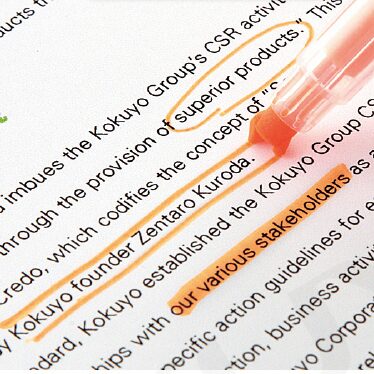 oducts th
d imbues the Kokuyo Group's CSR activit
through the provision of superior products." This
Credo, which codifies the concept of "S
by Kokuyo founder Zentaro Kuroda.
ndard, Kokuyo established the Kokuyo Group CS
ships with our various stakeholders as a
pecific action guidelines for e
ction, business activit
yo Corporat
rect